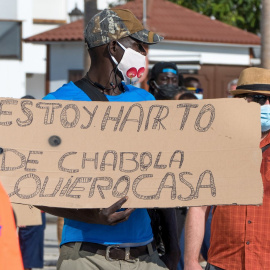 ESTOY HARTO
DE CHABOLA
QUIERO CASA